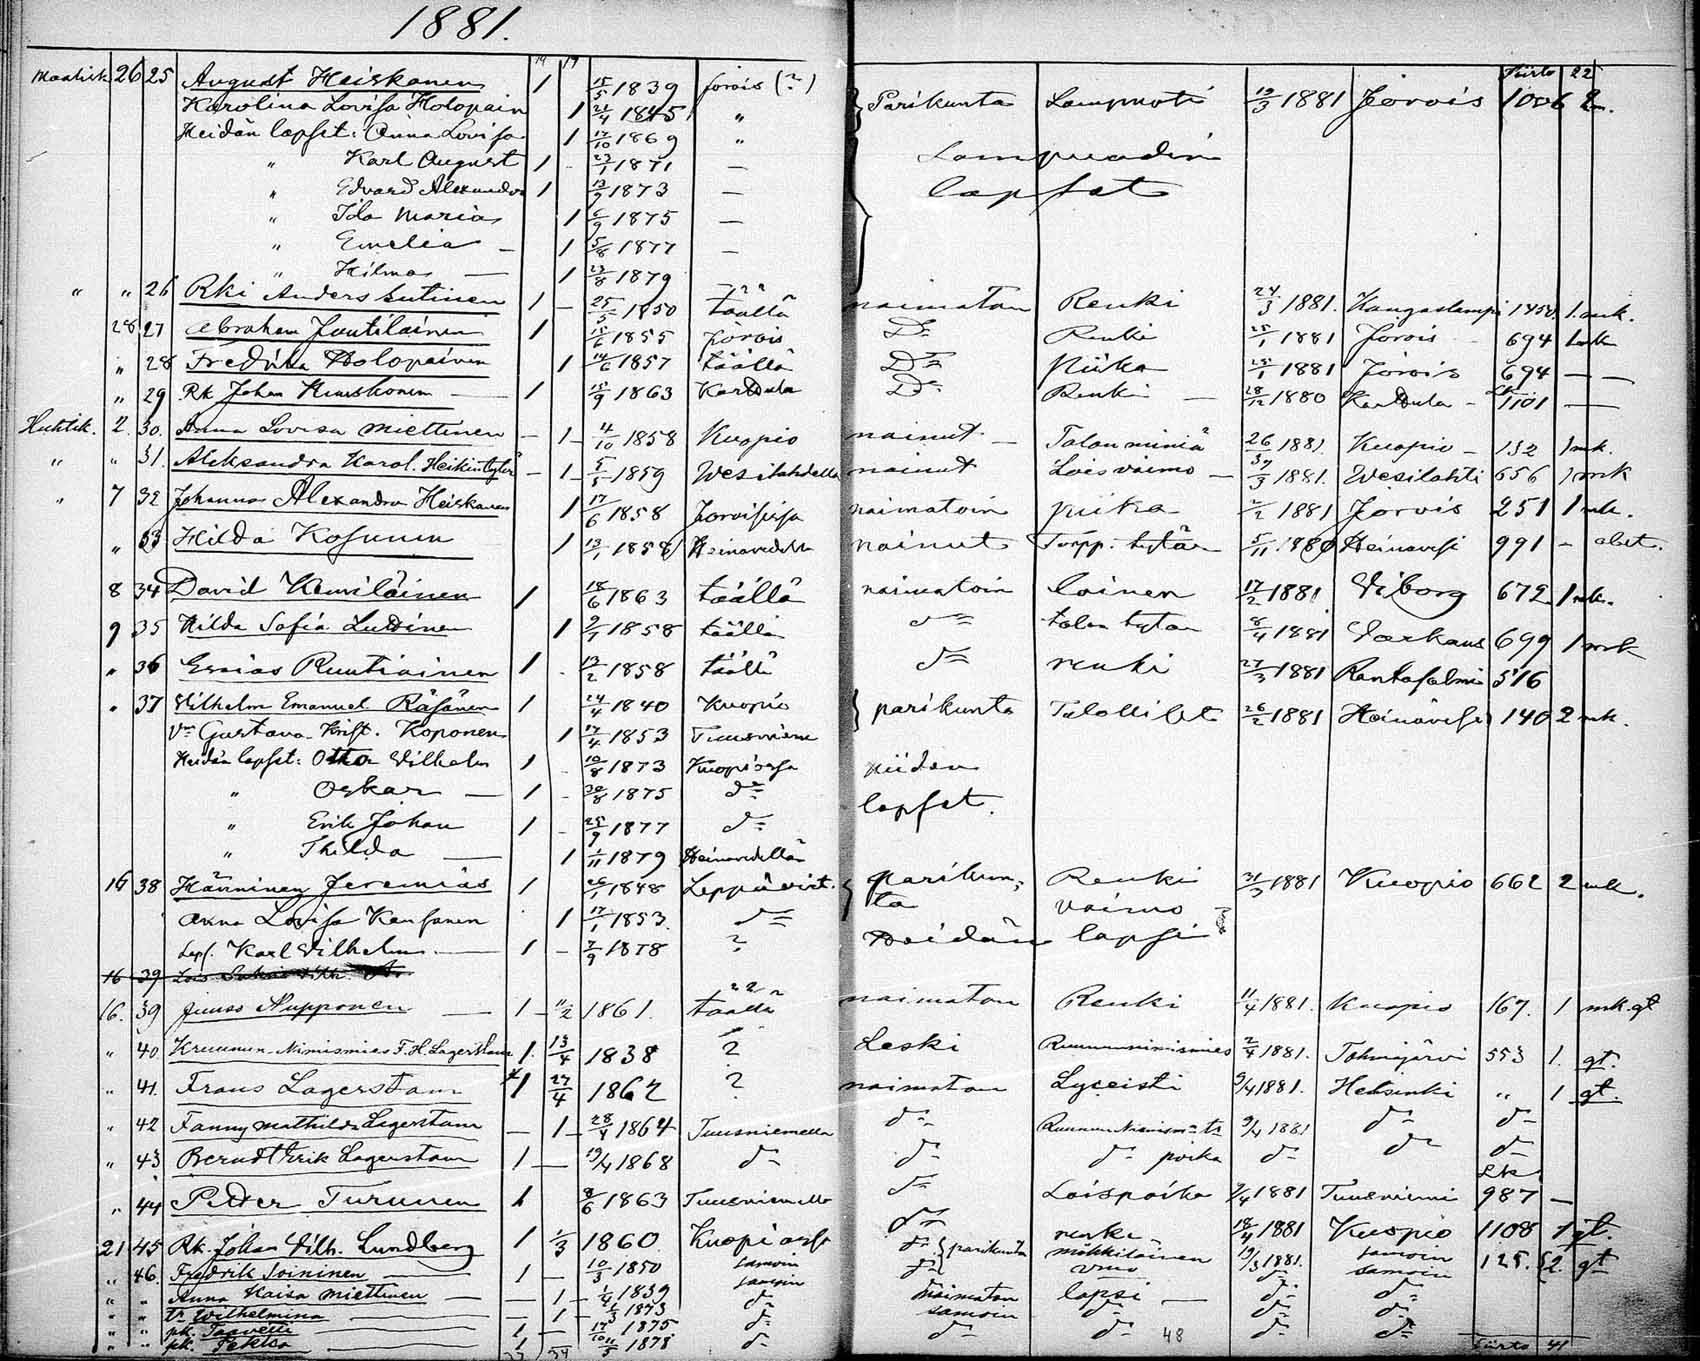 1881.
19 19 Siirto 22
Maalisk 26 25 August Heiskanen 1 15/5 1839 Jorois (?) Parikunta Lampuoti 19/3 1881 Jorois 1006 2 m.
Karolina Lovisa Holopain 1 22/4 1845 " Lampuodin
Heidän lapset: Anna Lovisa 1 17/10 1869 " lapset
" Karl August 1 23/1 1871 —
" Edvard Alexander 1 13/9 1873 —
" Ida Maria 1 6/9 1875 —
" Emelia — 1 5/8 1877 —
" Hilma — 1 23/8 1879 —
" " 26 Rki Anders Lutinen 1 — 25/5 1850 täällä naimaton Renki 24/3 1881. Kangaslampi 1450 1 mk.
28 27 Abraham Joutilainen 1 15/6 1855 Jorois Do Renki 25/1 1881 Jorois 694 1 mk
" 28 Fredrika Holopainen 1 14/6 1857 täällä Do Piika 25/1 1881 Jorois 694 — —
" 29 Rk Johan — 1 15/9 1863 Karttula Do Renki — 28/12 1880 Karttula — 1101 —
Huhtik. 2. 30. Anna Lovisa Miettinen — 1 — 4/10 1858 Kuopio nainut — Talon miniä 26/3 1881. Kuopio — 132 1 mk.
" " 31. Aleksandra Karol. Heikintytär — 1 — 5/5 1859 Wesilahdella nainut Loisvaimo — /3 1881. Wesilahti 656 1 mk
" 7 32 Johanna Alexandra Heiskanen 1 17/6 1858 Joroisissa naimatoin piika 2/2 1881 Jorois 251 1 mk.
" 33 Hilda Kosunen 1 13/1 1858 Heinävedellä nainut Torpp. tytär 5/11 1880 Heinävesi 991 —
8 34 David Kemiläinen 1 18/6 1863 täällä naimatoin loinen 17/2 1881 Viborg 672 1 mk.
9 35 Hilda Sofia 1 2/1 1858 täällä do talon tytär 8/4 1881 Varkaus 699 1 mk
" 36 Esaias Ruutiainen 1 . 13/2 1858 täällä do renki 27/3 1881 Rantasalmi 516
" 37 Vilhelm Emanuel Räsänen 1 24/4 1840 Kuopio parikunta Talolliset 26/2 1881 Heinävesi 140 2 mk.
Vmo Gustava Krist. Koponen 1 17/4 1853 Tuusniemi
Heidän lapset: Otto Vilhelm 1 . 10/8 1873 Kuopiossa niiden
" Oskar — 1 — 30/8 1875 do lapset.
" Erik Johan 1 — 25/9 1877 do
" Thilda — 1 1/11 1879 Heinävedellä
16 38 Hänninen Jeremias 1 26/1 1848 Leppävirt. parikun- Renki 31/3 1881 Kuopio 662 2 mk.
Anna Lovisa Kansanen 1 17/1 1853. do ta vaimo
Laps. Karl Vilhelm — 1 — 7/9 1878 ? Heidän lapsi
16 39
16. 39 Juuso Nupponen — 1 — 11/2 1861. täällä naimaton Renki 11/4 1881. Kuopio 167. 1 mk. gt
" 40. Kruunun-Nimismies F. H. Lagerstam 1. 13/4 1838 ? Leski Ruununnimismies 2/4 1881. Tohmajärvi 553 1. gt.
" 41. Frans Lagerstam 1 27/4 1862 ? naimaton Lyceisti 9/4 1881. Helsinki " 1 gt.
" 42 Fanny Mathilda Lagerstam — 1 — 28/4 1864 Tuusniemella do 9/4 1881 do do
" 43 Berndt Erik Lagerstam 1 — 19/4 1868 do do do poika do do do
" 44 Petter Turunen 1 8/6 1863 Tuusniemellä do Loispoika 9/4 1881 Tuusniemi 987 —
21 45 Rk. Johan Vilh. Lundberg 1 1/3 1860 Kuopiossa do renki 18/4 1881 Kuopio 1108 1 gt.
" 46. Fredrik Soininen — 1 — 10/3 1850 samoin do parikunta mökkiläinen 19/3 1881. samoin 125. 2. gt
" " Anna Kaisa Miettinen — 1 — 1/4 1839 samoin do vmo do samoin
" " tr Wilhelmina — 1 — 1873 do naimaton lapsi — do do
" " pk. Taavetti — 1 — 17/10 1875 do samoin do do do
" " pk. Pekka — 1 1878 do do do 48 do do
Siirto 41